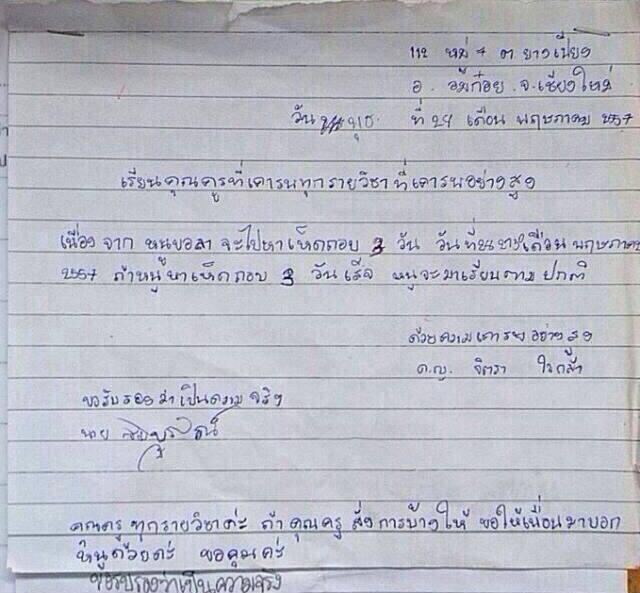 112 หมู่ 4 ต ยางเปียง
อ. อมก๋อย จ.เชียงใหม่
วัน พุธ ที่ 24 เดือน พฤษภาคม 2557
เรียนคุณครูที่เคารพทุกรายวิชาที่เคารพอย่างสูง
เนื่องจาก หนูขอลา จะไปหาเห็ดถอบ 3 วัน วันที่ เดือน พฤษภาคม
2557 ถ้าหนูหาเห็ดถอบ 3 วันเสร็จ หนูจะมาเรียนตาม ปกติ
ด้วยความเคารพอย่างสูง
ด.ญ. จิตรา ใจกล้า
ขอรับรองว่าเป็นความจริง
นาย
คุณครูทุกรายวิชาค่ะ ถ้าคุณครู สั่งการบ้างให้ ขอให้เพื่อนมาบอก
หนูด้วยค่ะ ขอคุณค่ะ
ขอรับรองว่าเป็นความจริง